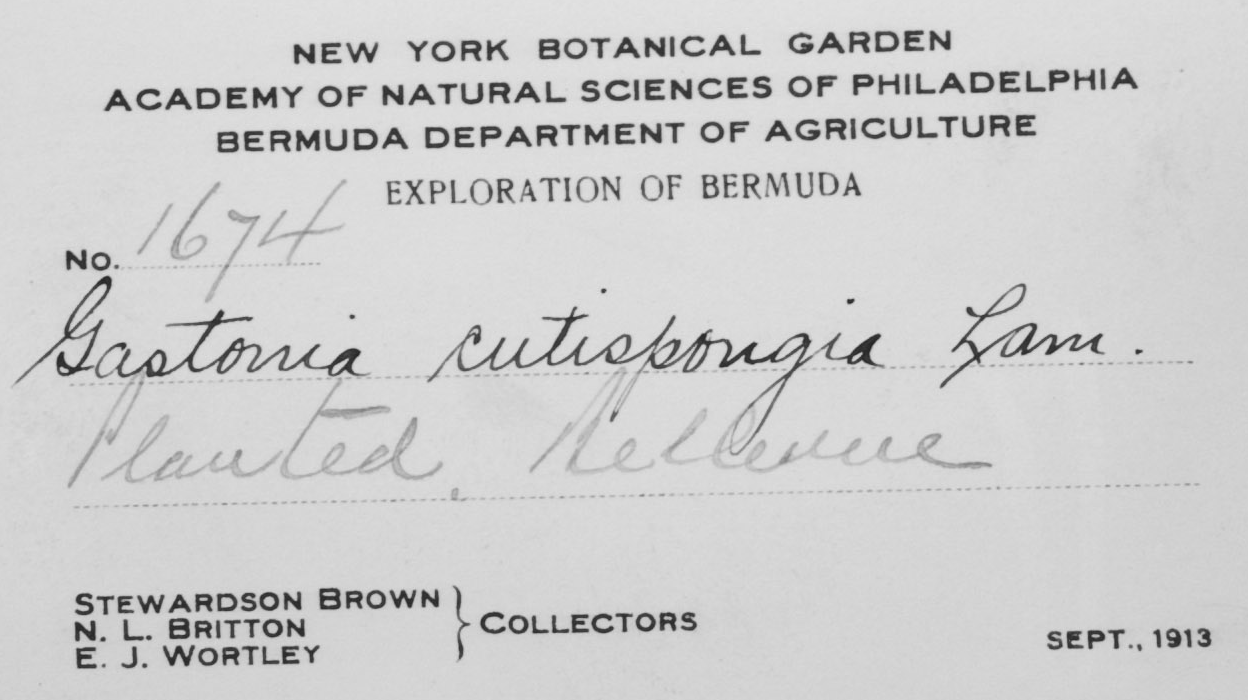 NEW YORK BOTANICAL GARDEN
ACADEMY OF NATURAL SCIENCES OF PHILADELPHIA
BERMUDA DEPARTMENT OF AGRICULTURE
EXPLORATION OF BERMUDA
No. 1674
Gastonia cutispongia Lam.
Planted, Bellevue
STEWARDSON BROWN
N. L. BRITTON
E. J. WORTLEY
COLLECTORS
SEPT., 1913